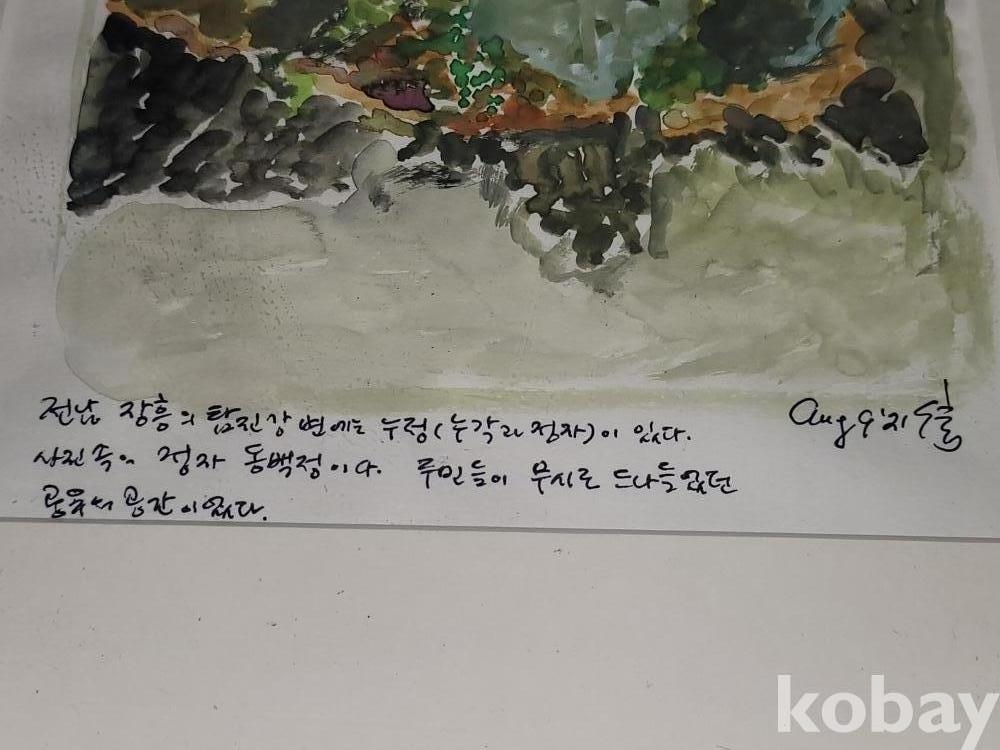 전남 장흥의 탐진강변에는 누정(누각과 정자)이 있다.
사진속의 정자 동백정이다. 루민들이 무시로 드나들었던
공유의 공간이었다.
Aug 9 '21
kobay